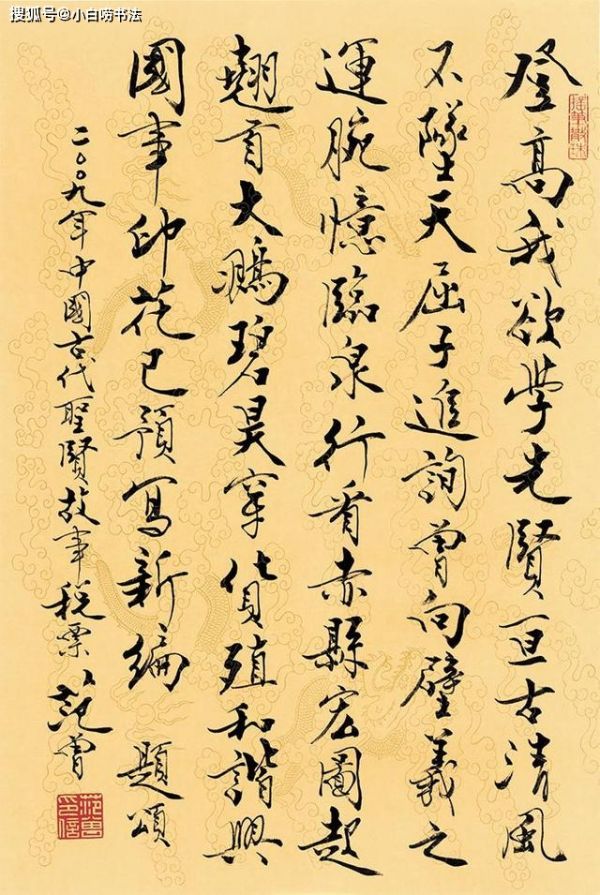 搜狐号@小白唠书法
登高我欲學先賢亘古清風
不墜天屈子進詢曾向壁羲之
運腕憶臨泉行看赤縣宏圖起
翹首大鵬碧昊穿貨殖和諧興
國事印花已預寫新編 題頌
二〇〇九年中國古代聖賢故事税票 范曾
范曾印信